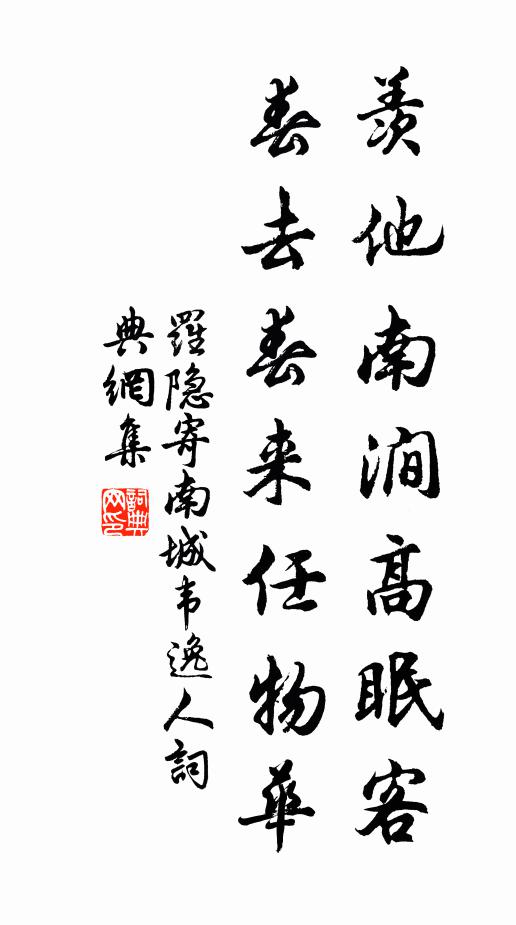 羨他南澗高眠客
春去春来任物華
羅隐寄南城韦逸人詞
典網集
詞典
网印